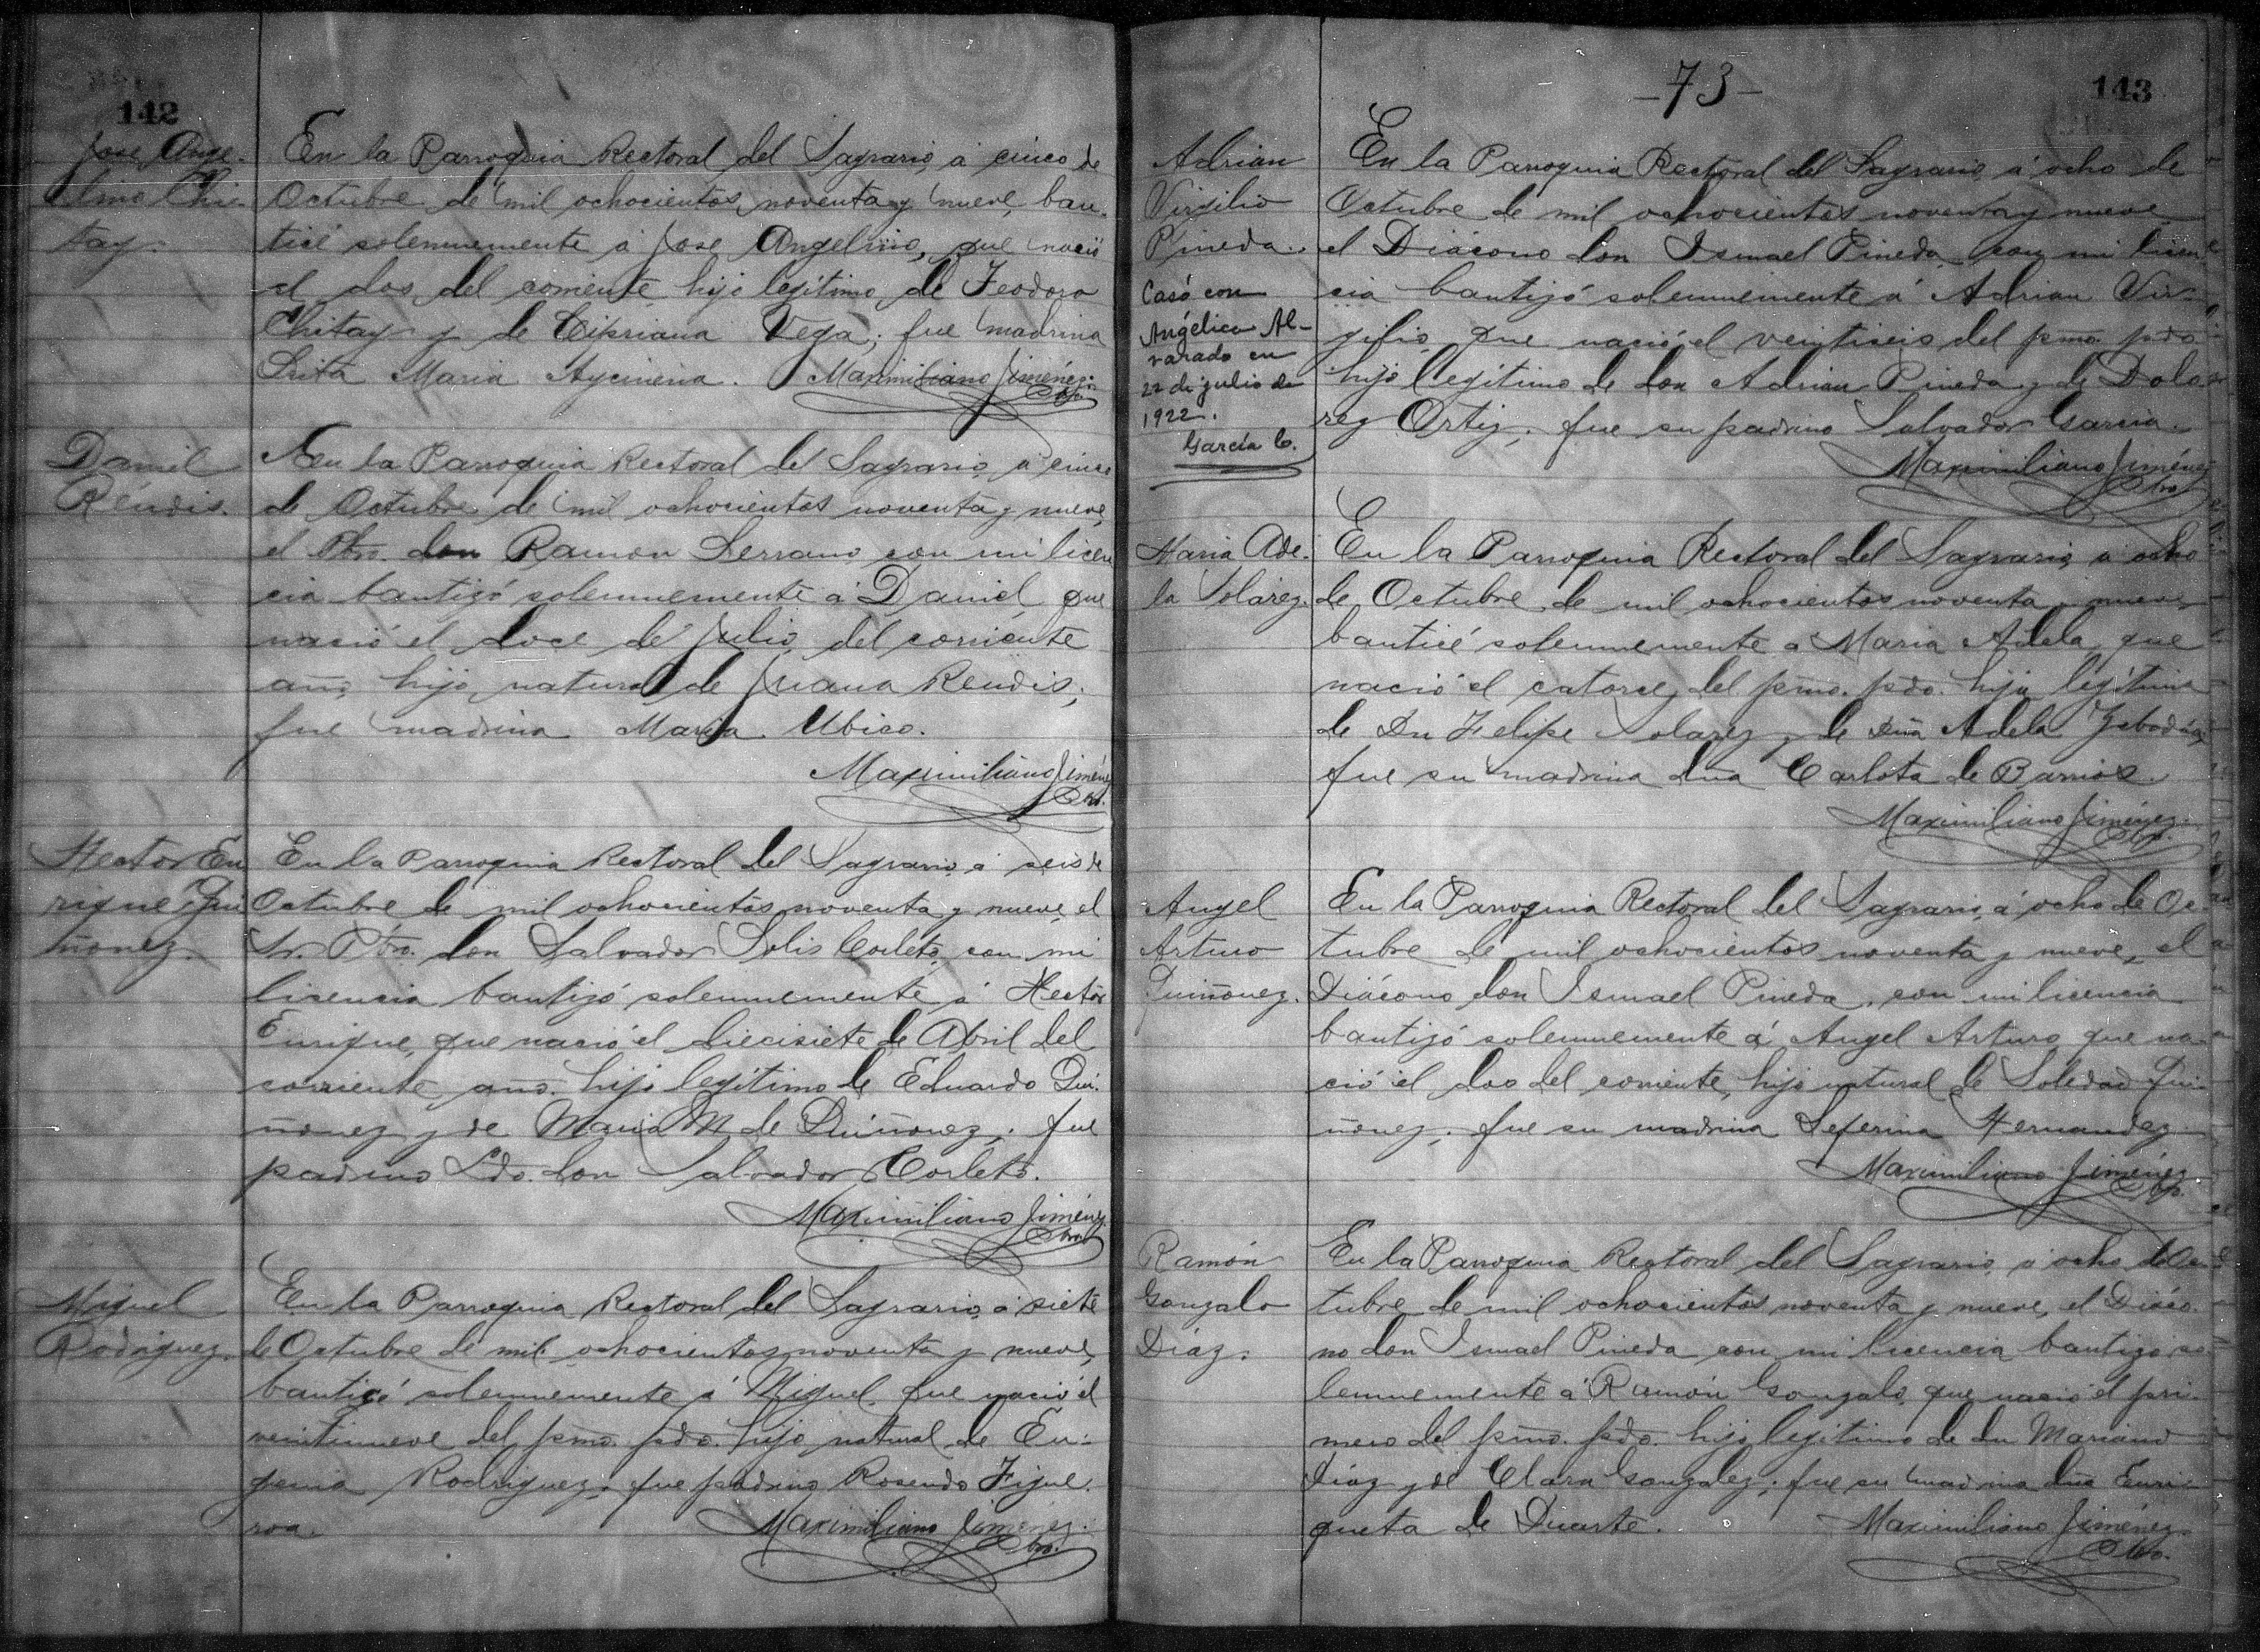 142
Jose Ange-
lino Chi-
tay.
En la Parroquia Rectoral del Sagrario, á cinco de
Octubre de mil ochocientos noventa y nueve, bau-
ticé solemnemente á Jose Angelino, que nació
el dos del corriente hijo legítimo de Teodoro
Chitay y de Cipriana Vega; fue madrina
Srita Maria Aycinena. Maximiliano Jiménez
Pbro.
Daniel
Réndis.
En la Parroquia Rectoral del Sagrario, á cinco
de Octubre de mil ochocientos noventa y nueve,
el Pbro. don Ramon Serrano, con mi licen
cia bautizó solemnemente á Daniel, que
nació el doce de Julio del corriente
año, hijo natural de Juana Rendis;
fue madrina Maria Ubico.
Maximiliano Jiménez
Pbro.
Hector En
rique Qui
ñonez.
En la Parroquia Rectoral del Sagrario, á seis de
Octubre de mil ochocientos noventa y nueve, el
Sr. Pbro. don Salvador Solis Corleto, con mi
licencia bautizó solemnemente á Hector
Enrique, que nació el diecisiete de Abril del
corriente año. hijo legítimo de Eduardo Qui-
ñonez y de Maria M de Quiñonez; fue
padrino Ldo. don Salvador Corleto.
Maximiliano Jiménez
Pbro.
Miguel
Rodriguez.
En la Parroquia Rectoral del Sagrario, á siete
de Octubre de mil ochocientos noventa y nueve,
bauticé solemnemente á Miguel, que nació el
veintinueve del pmo. pdo. hijo natural de Eu-
genia Rodriguez; fue padrino Rosendo Figue-
roa. Maximiliano Jiménez.
Pbro.
-73-
143
Adrian
Virgilio
Pineda.
Casó con
Angélica Al-
varado en
22 de julio de
1922.
García C.
En la Parroquia Rectoral del Sagrario, á ocho de
Octubre de mil ochocientos noventa y nueve
el Diácono don Ismael Pineda, con mi licen
cia bautizó solemnemente á Adrian Vir-
gilio, que nació el veintiseis del pmo. pdo.
hijo legítimo de don Adrian Pineda y de Dolo
rez Ortiz; fue su padrino Salvador Garcia.
Maximiliano Jiménez
Pbro.
Maria Ade-
la Solárez.
En la Parroquia Rectoral del Sagrario, á ocho
de Octubre de mil ochocientos noventa y nueve,
bauticé solemnemente a Maria Adela, que
nació el catorce del pmo. pdo. hija legítima
de Dn Felipe Solarez y de Dña Adela
fue su madrina dña Carlota de Barrios.
Maximiliano Jiménez.
Pbro.
Angel
Arturo
Quiñonez.
En la Parroquia Rectoral del Sagrario, á ocho de Oc-
tubre de mil ochocientos noventa y nueve, el
Diácono don Ismael Pineda, con mi licencia
bautizó solemnemente á Angel Arturo que na-
ció el dos del corriente, hijo natural de Soledad Qui-
ñonez; fue su madrina Seferina Hernandez
Maximiliano Jiménez
Pbro.
Ramón
Gonzalo
Díaz.
En la Parroquia Rectoral del Sagrario, á ocho de Oc-
tubre de mil ochocientos noventa y nueve, el Diáco-
no don Ismael Pineda con mi licencia bautizo so
lemnemente á Ramón Gonzalo, que nació el pri-
mero del pmo. pdo. hijo legítimo de dn Mariano
Díaz y de Clara Gonzalez; fue su madrina dña Enri-
queta de Duarte. Maximiliano Jiménez.
Pbro.